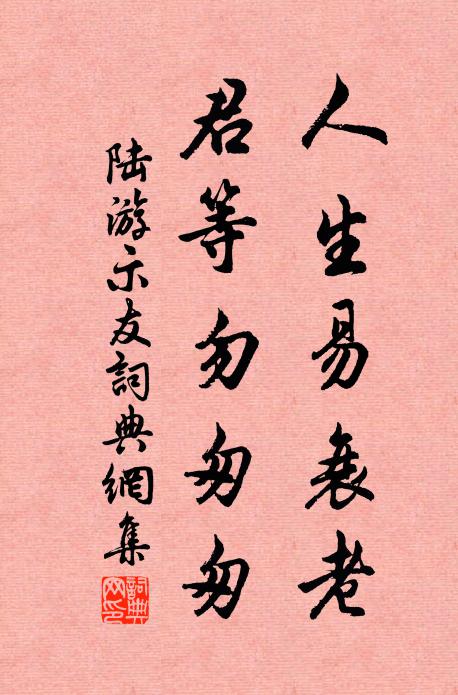 人生易衰老
君等勿匆匆
陸游示友詞典網集
詞典網印